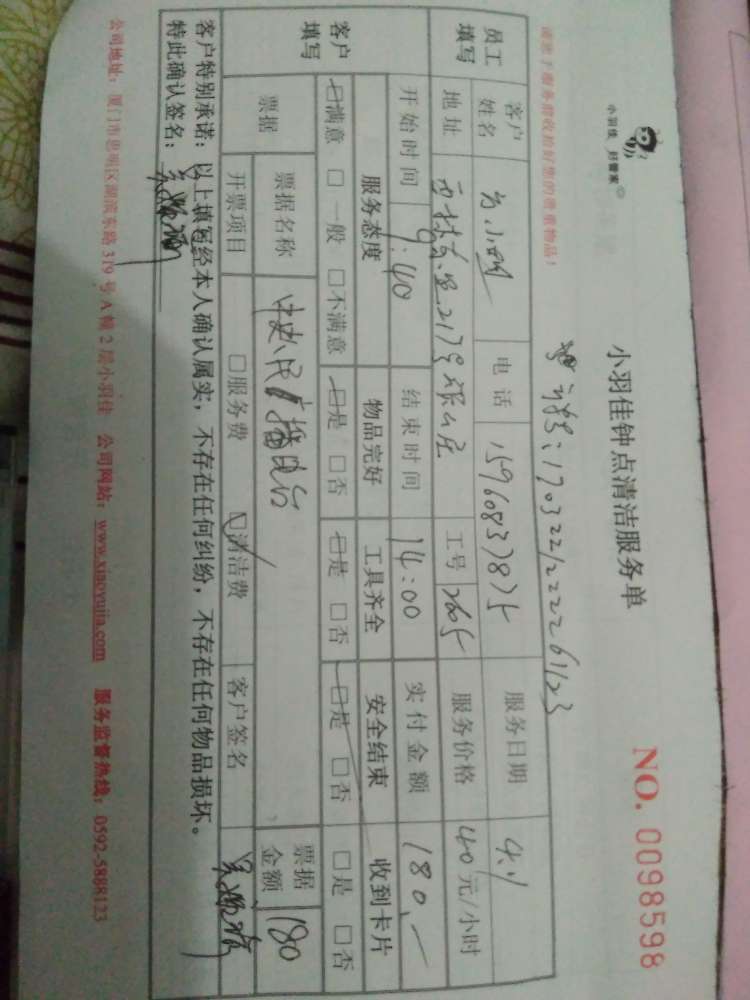 小羽佳 好管家
小羽佳钟点清洁服务单
NO. 0098598
请您于服务前收拾好您的贵重物品!
员工填写
客户姓名
电话
服务日期 4.1
地址
工号 2605
服务价格 40元/小时
开始时间 9:40
结束时间 14:00
实付金额 180.—
客户填写
服务态度 物品完好 工具齐全 安全结束 收到卡片
☑满意 □一般 □不满意 ☑是 □否 ☑是 □否 ☑是 □否 □是 □否
票据
票据名称
票据金额 180
开票项目 □服务费 ☑清洁费 客户签名
客户特别承诺:以上填写经本人确认属实,不存在任何纠纷,不存在任何物品损坏。
特此确认签名:
公司地址:厦门市思明区湖滨东路319号A幢2层小羽佳 公司网站:www.xiaoyujia.com 服务监督热线:0592-5888123